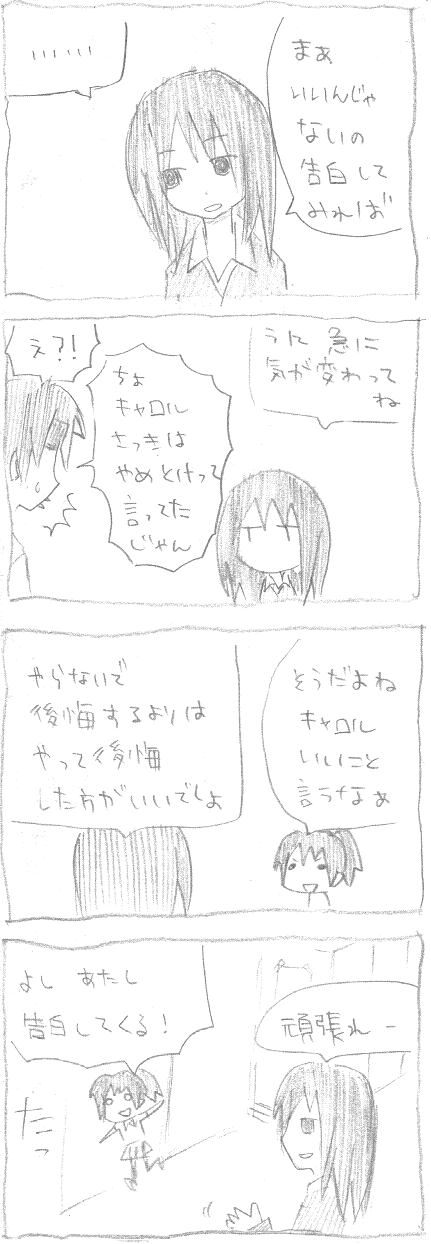 まぁ
いいんじゃ
ないの
告白して
みれば
……
うん 急に
気が変わって
ね
ちょ
キャロル
さっきは
やめとけって
言ってた
じゃん
え?!
そうだよね
キャロル
いいこと
言うなぁ
やらないで
後悔するよりは
やって後悔
した方がいいでしょ
頑張れー
よし あたし
告白してくる!
たっ